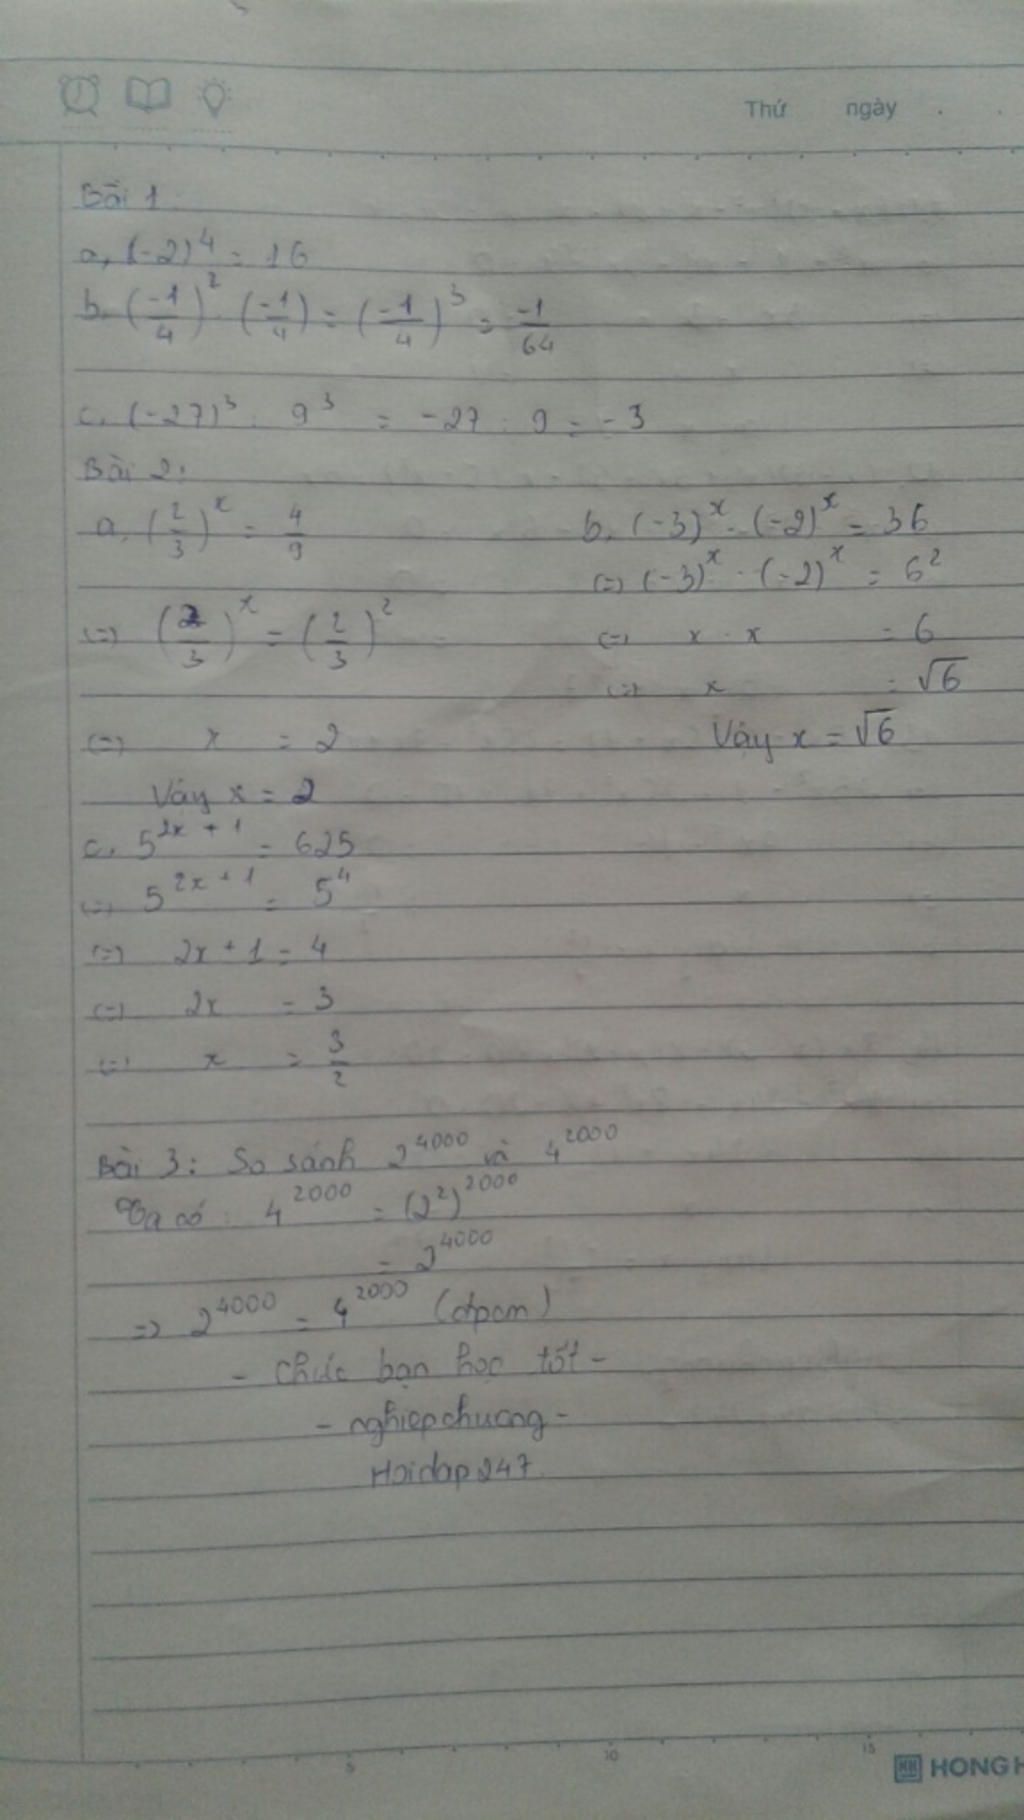 Thứ ngày
Bài 1
a, (-2)^4 = 16
b, (-1/4)^2 · (-1/4) = (-1/4)^3 = -1/64
c, (-27)^3 : 9^3 = -27 : 9 = -3
Bài 2:
a, (2/3)^x = 4/9
<=> (2/3)^x = (2/3)^2
<=> x = 2
Vậy x = 2
b, (-3)^x · (-2)^x = 36
<=> (-3)^x · (-2)^x = 6^2
<=> x · x = 6
<=> x = √6
Vậy x = √6
c, 5^(2x + 1) = 625
<=> 5^(2x + 1) = 5^4
<=> 2x + 1 = 4
<=> 2x = 3
<=> x = 3/2
Bài 3: So sánh 2^4000 và 4^2000
Ta có : 4^2000 = (2^2)^2000
= 2^4000
=> 2^4000 = 4^2000 (đpcm)
- Chúc bạn học tốt -
- nghiepchuong -
Hoidap247.
5 10 15
HONG H